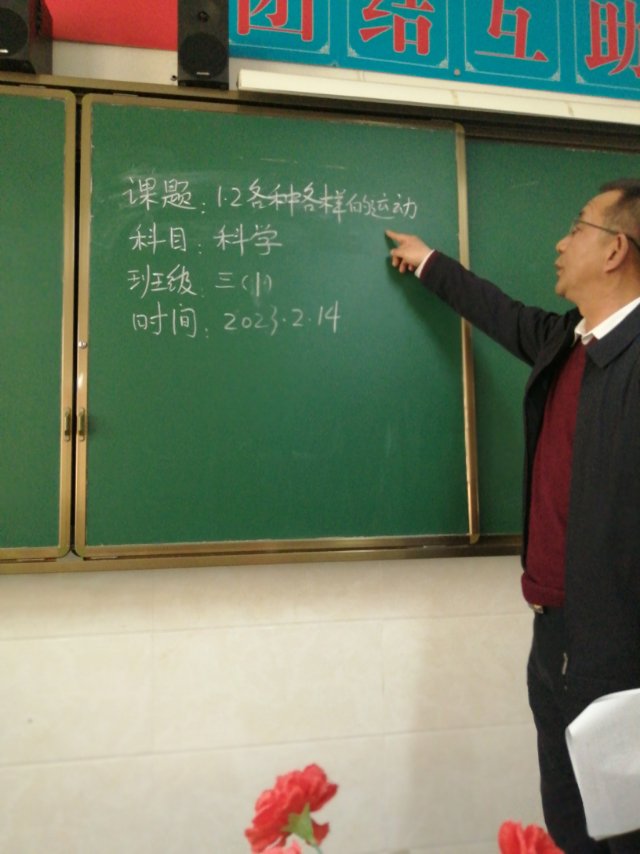 团结互助
课题：1.2各种各样的运动
科目：科学
班级：三（1）
时间：2023.2.14